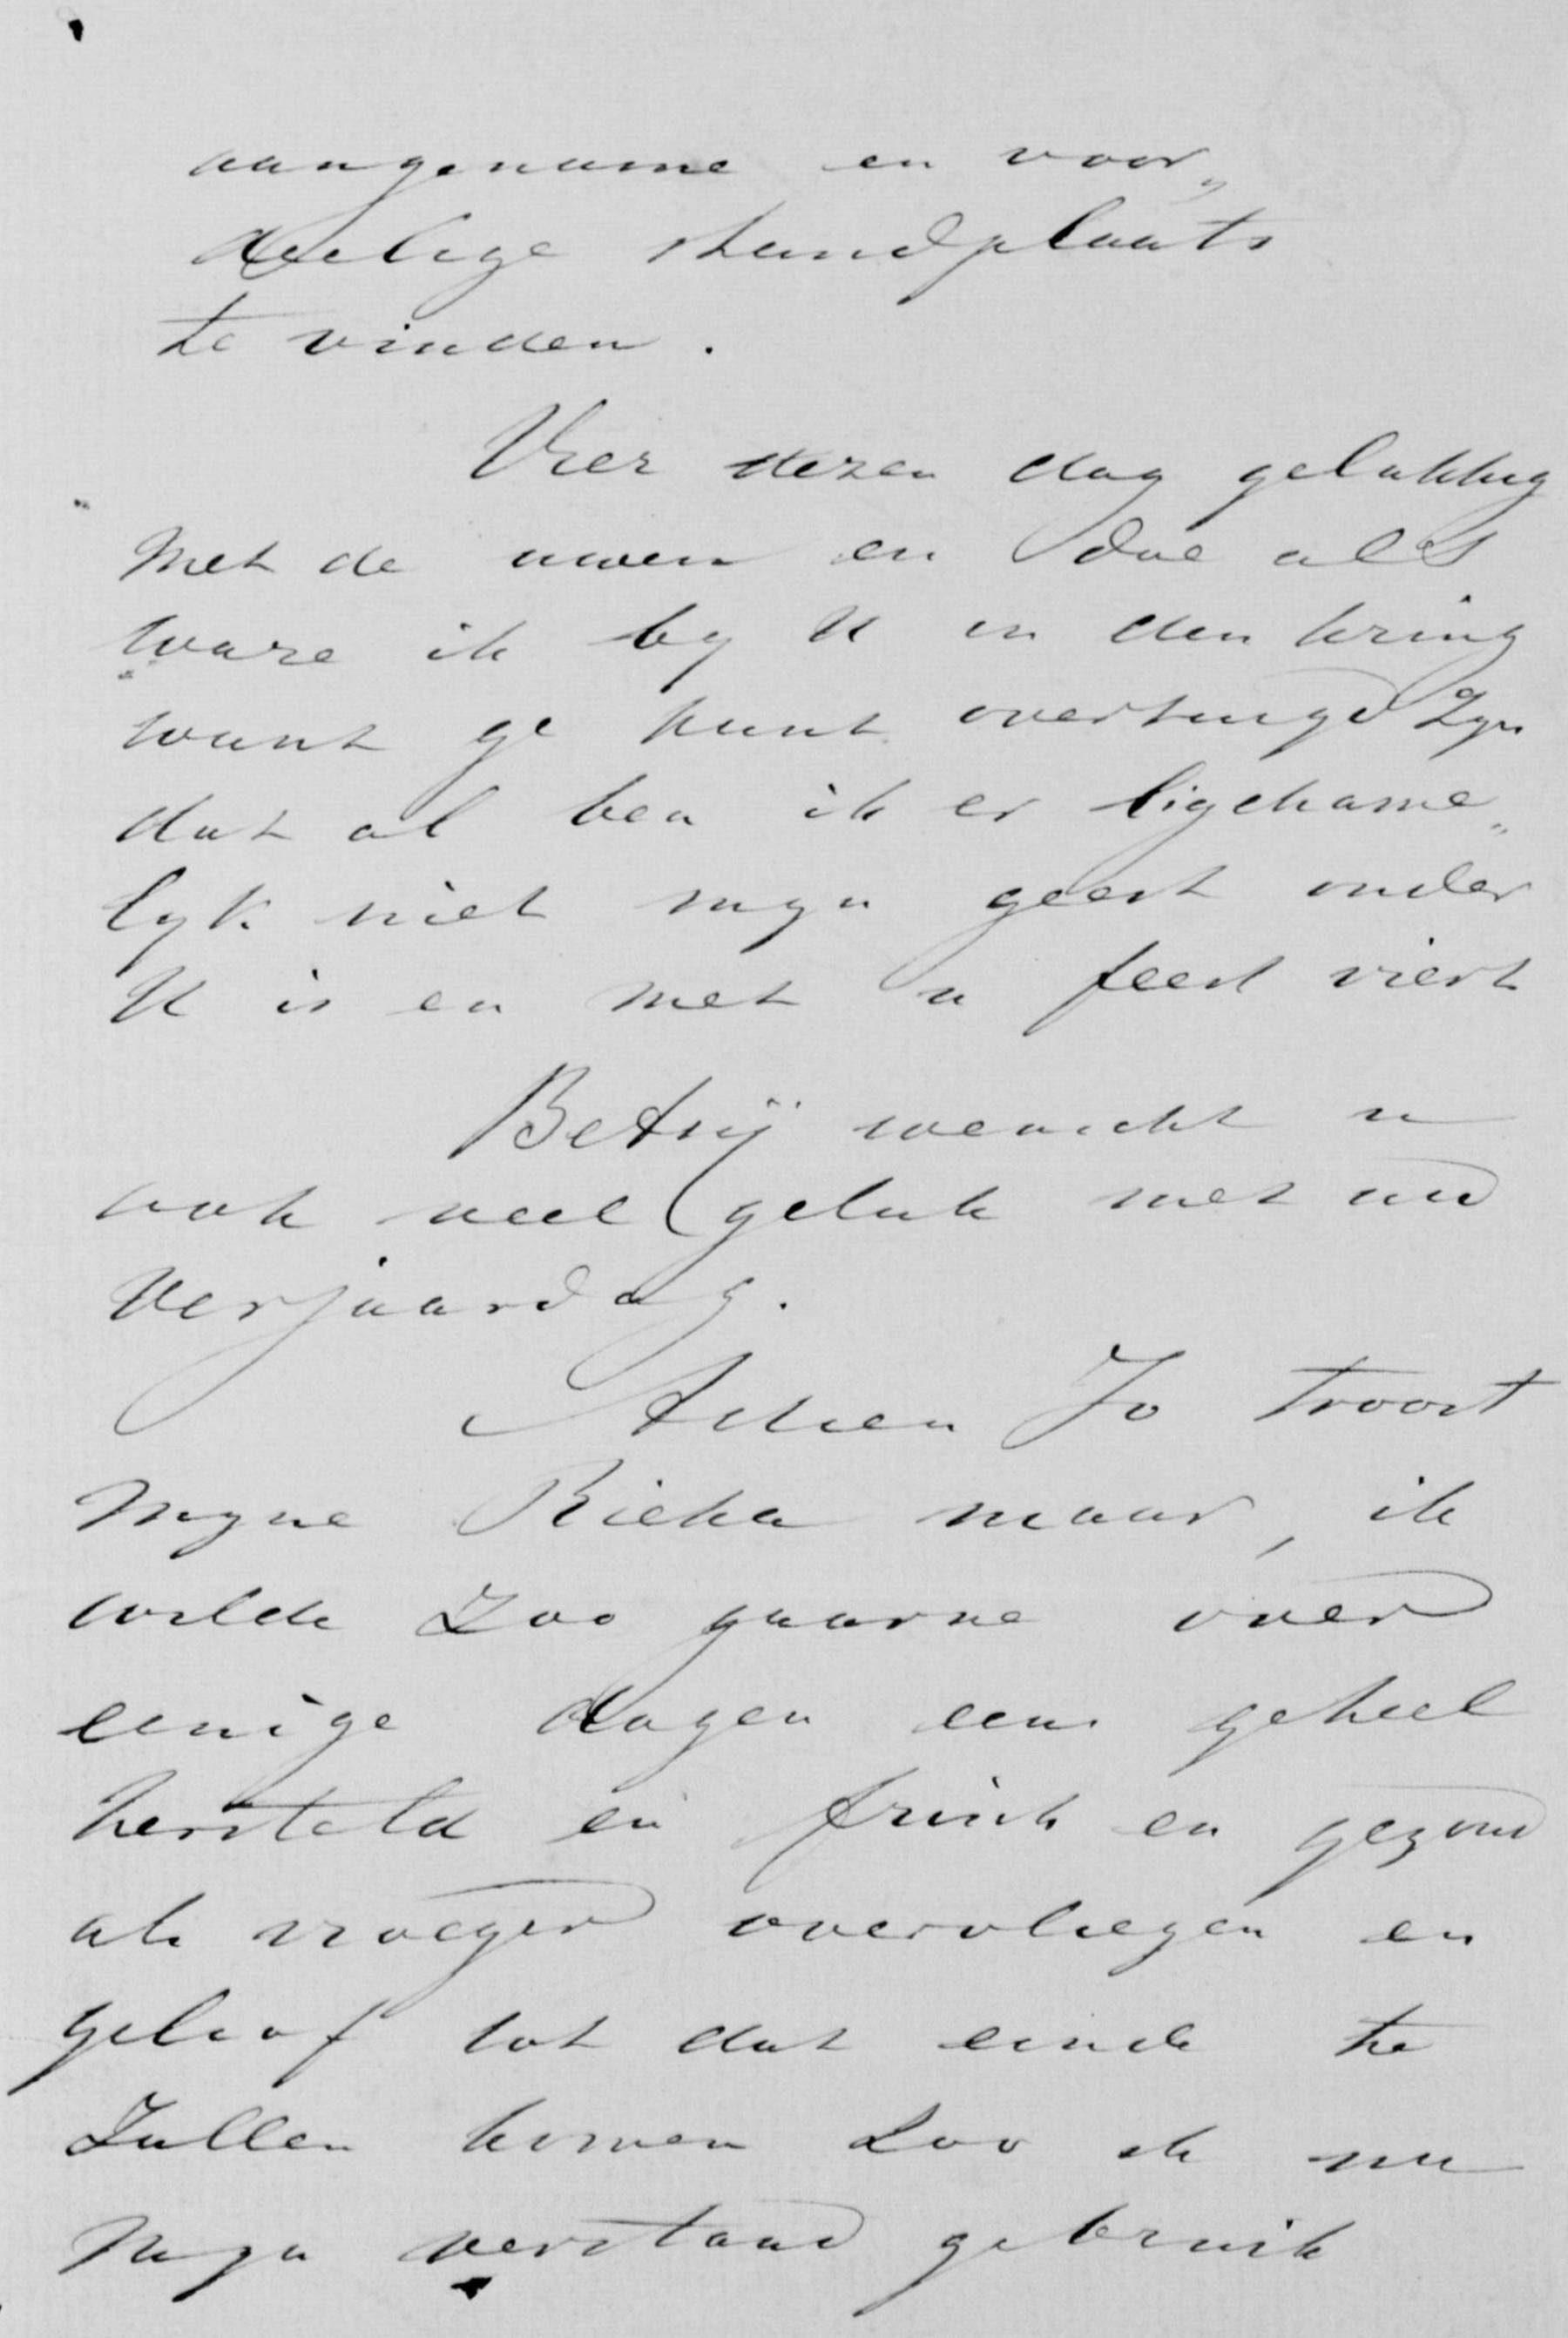 aangename en voor„
deelige standplaats
te vinden.
Vier dezen dag gelukkig
met de uwen en doe als
ware ik by U in den kring
want ge kunt overtuigd zyn
dat al ben ik er ligchame„
lyk niet myn geest onder
U is en met u feest viert
Betsij wenscht u
ook veel geluk met uw
verjaardag.
Adieu Jo troost
myne Rieka maar, ik
wilde zoo gaarne over
eenige dagen eens geheel
hersteld en frisch en gezond
als vroeger overvliegen en
geloof tot dat einde te
zullen komen zoo ik nu
myn verstand gebruik